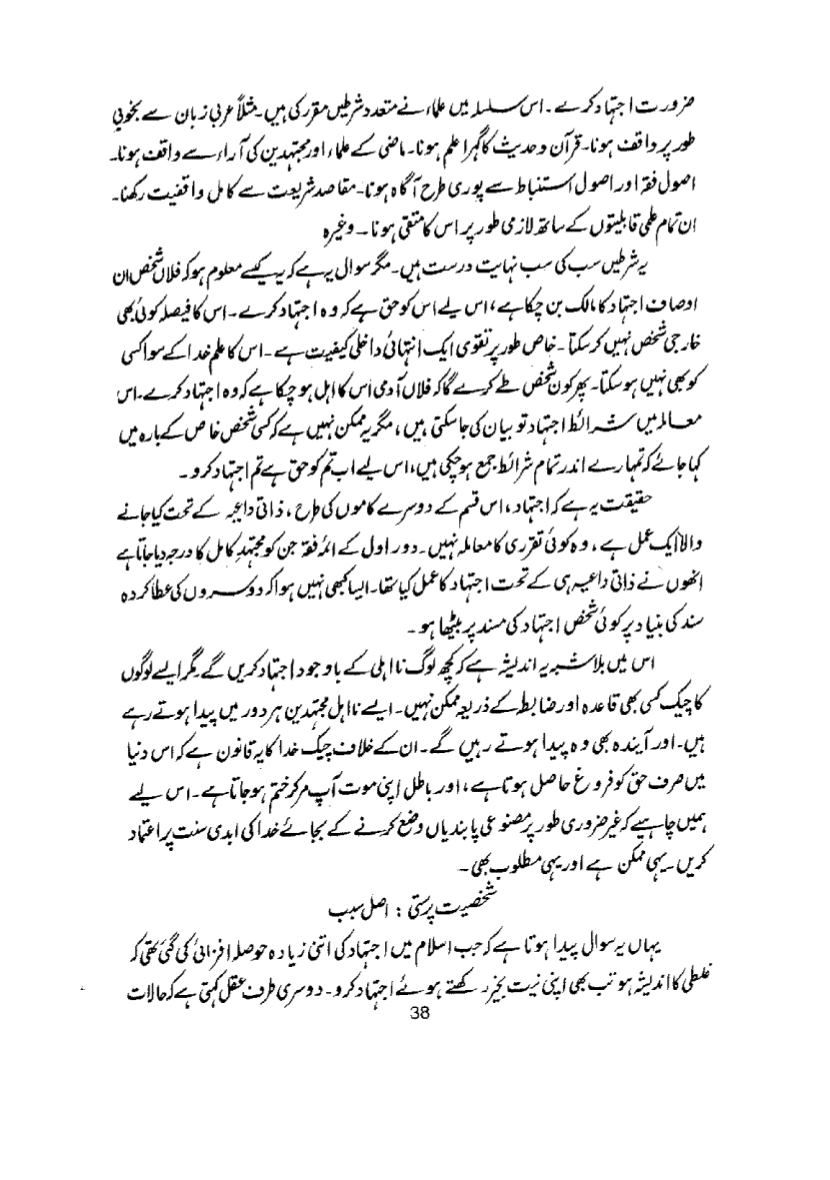 ضرورت اجتہاد کرے۔ اس سلسلہ میں علماء نے متعدد شرطیں مقرر کی ہیں۔ مثلاً عربی زبان سے بخوبی
طور پر واقف ہونا۔ قرآن و حدیث کا گہرا علم ہونا۔ ماضی کے علماء اور مجتہدین کی آراء سے واقف ہونا۔
اصول فقہ اور اصول استنباط سے پوری طرح آگاہ ہونا۔ مقاصد شریعت سے کامل واقفیت رکھنا۔
ان تمام علمی قابلیتوں کے ساتھ لازمی طور پر اس کا متقی ہونا۔ وغیرہ
یہ شرطیں سب کی سب نہایت درست ہیں۔ مگر سوال یہ ہے کہ یہ کیسے معلوم ہو کہ فلاں شخص ان
اوصاف اجتہاد کا مالک بن چکا ہے، اس لیے اس کو حق ہے کہ وہ اجتہاد کرے۔ اس کا فیصلہ کوئی بھی
خارجی شخص نہیں کر سکتا۔ خاص طور پر تقویٰ ایک انتہائی داخلی کیفیت ہے۔ اس کا علم خدا کے سوا کسی
کو بھی نہیں ہو سکتا۔ پھر کون شخص طے کرے گا کہ فلاں آدمی اس کا اہل ہو چکا ہے کہ وہ اجتہاد کرے۔ اس
معاملہ میں شرائط اجتہاد تو بیان کی جا سکتی ہیں، مگر یہ ممکن نہیں ہے کہ کسی شخص خاص کے بارہ میں
کہا جائے کہ تمہارے اندر تمام شرائط جمع ہو چکی ہیں، اس لیے اب تم کو حق ہے تم اجتہاد کرو۔
حقیقت یہ ہے کہ اجتہاد، اس قسم کے دوسرے کاموں کی طرح، ذاتی داعیہ کے تحت کیا جانے
والا ایک عمل ہے، وہ کوئی تقرری کا معاملہ نہیں۔ دور اول کے ائمہ فقہ جن کو مجتہدِ کامل کا درجہ دیا جاتا ہے
انھوں نے ذاتی داعیہ ہی کے تحت اجتہاد کا عمل کیا تھا۔ ایسا کبھی نہیں ہوا کہ دوسروں کی عطا کردہ
سند کی بنیاد پر کوئی شخص اجتہاد کی مسند پر بیٹھا ہو۔
اس میں بلاشبہ یہ اندیشہ ہے کہ کچھ لوگ نااہلی کے باوجود اجتہاد کریں گے۔ مگر ایسے لوگوں
کا چیک کسی بھی قاعدہ اور ضابطہ کے ذریعہ ممکن نہیں۔ ایسے نااہل مجتہدین ہر دور میں پیدا ہوتے رہے
ہیں۔ اور آیندہ بھی وہ پیدا ہوتے رہیں گے۔ ان کے خلاف چیک خدا کا یہ قانون ہے کہ اس دنیا
میں صرف حق کو فروغ حاصل ہوتا ہے، اور باطل اپنی موت آپ مر کر ختم ہو جاتا ہے۔ اس لیے
ہمیں چاہیے کہ غیر ضروری طور پر مصنوعی پابندیاں وضع کرنے کے بجائے خدا کی ابدی سنت پر اعتماد
کریں۔ یہی ممکن ہے اور یہی مطلوب بھی۔
شخصیت پرستی : اصل سبب
یہاں یہ سوال پیدا ہوتا ہے کہ جب اسلام میں اجتہاد کی اتنی زیادہ حوصلہ افزائی کی گئی تھی کہ
غلطی کا اندیشہ ہو تب بھی اپنی نیت بخیر رکھتے ہوئے اجتہاد کرو۔ دوسری طرف عقل کہتی ہے کہ حالات
38